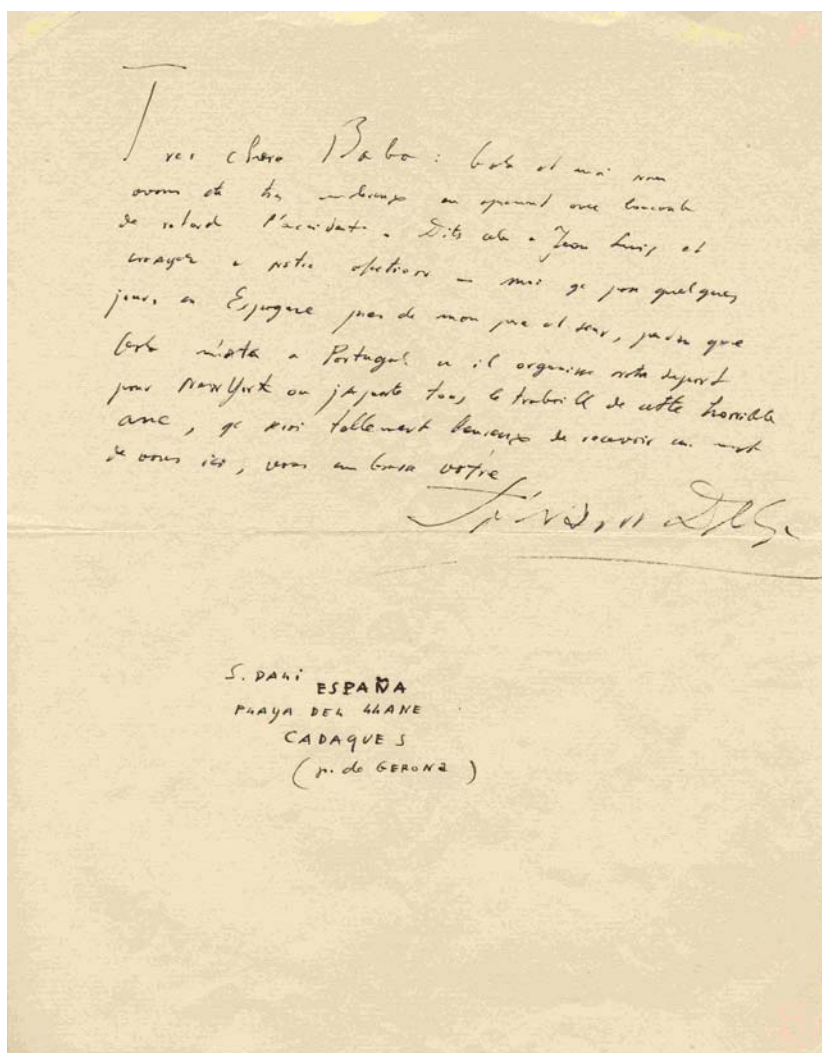 Tres chere Baba : Gala et moi nous
avons ete tres en aprenant avec
de retard l'accidente. Dits cela a Jean Luis et
croayez a notre afection — moi ge pase quelques
jours en Espagne pres de mon pere et seur, pandan que
Gala m'ata a Portugal u il organise notre depart
pour New York ou j'aporte tous le trabaill de cette horrible
ane, ge serai tellement heureux de recevoir un mot
de vous ici, vous embrasa vótre
Salvador Dalí
S. DALI
ESPAÑA
PLAYA DEL LLANE
CADAQUES
(p. de GERONA)